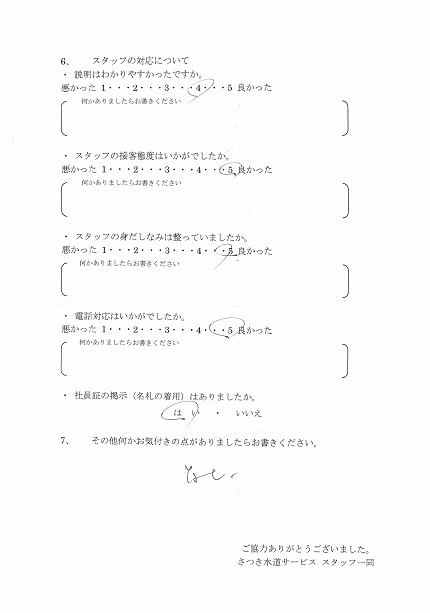 6、 スタッフの対応について
・ 説明はわかりやすかったですか。
悪かった 1・・・2・・・3・・・4・・・5 良かった
何かありましたらお書きください
・ スタッフの接客態度はいかがでしたか。
悪かった 1・・・2・・・3・・・4・・・5 良かった
何かありましたらお書きください
・ スタッフの身だしなみは整っていましたか。
悪かった 1・・・2・・・3・・・4・・・5 良かった
何かありましたらお書きください
・ 電話対応はいかがでしたか。
悪かった 1・・・2・・・3・・・4・・・5 良かった
何かありましたらお書きください
・ 社員証の掲示（名札の着用）はありましたか。
はい ・ いいえ
7、 その他何かお気付きの点がありましたらお書きください。
なし
ご協力ありがとうございました。
さつき水道サービス スタッフ一同